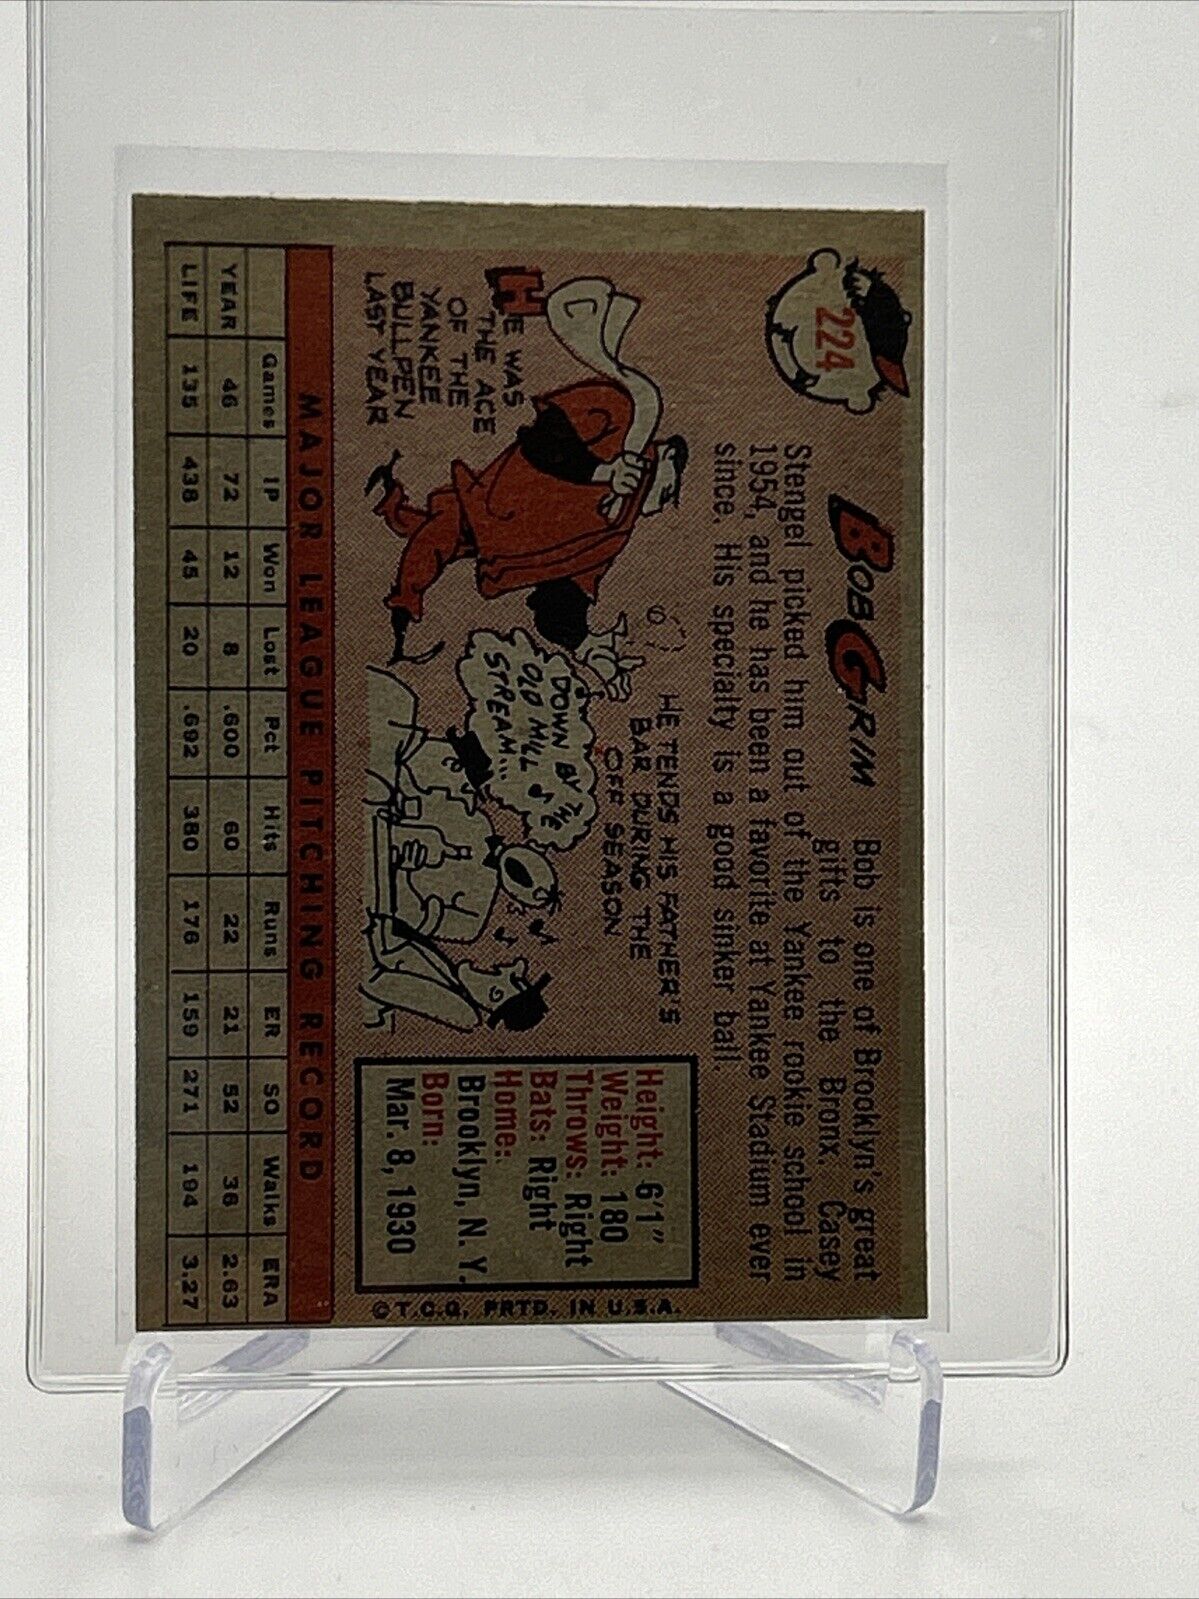 224
BOB GRIM
Bob is one of Brooklyn's great
gifts to the Bronx. Casey
Stengel picked him out of the Yankee rookie school in
1954, and he has been a favorite at Yankee Stadium ever
since. His specialty is a good sinker ball.
HE WAS
THE ACE
OF THE
YANKEE
BULLPEN
LAST YEAR
HE TENDS HIS FATHER'S
BAR DURING THE
OFF SEASON
DOWN BY THE
OLD MILL
STREAM...
Height: 6'1"
Weight: 180
Throws: Right
Bats: Right
Home:
Brooklyn, N. Y.
Born:
Mar. 8, 1930
©T.C.G. PRTD. IN U.S.A.
MAJOR LEAGUE PITCHING RECORD
Games IP Won Lost Pct Hits Runs ER SO Walks ERA
YEAR 46 72 12 8 .600 60 22 21 52 36 2.63
LIFE 135 438 45 20 .692 380 176 159 271 194 3.27